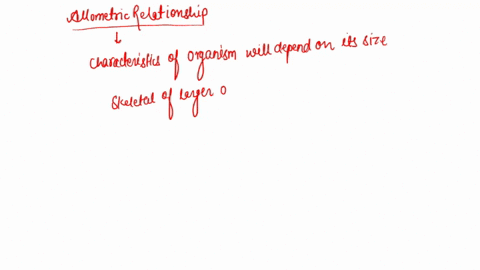 Allometric Relationship
Characteristics of organism will depend on its size
Skeletal of larger o